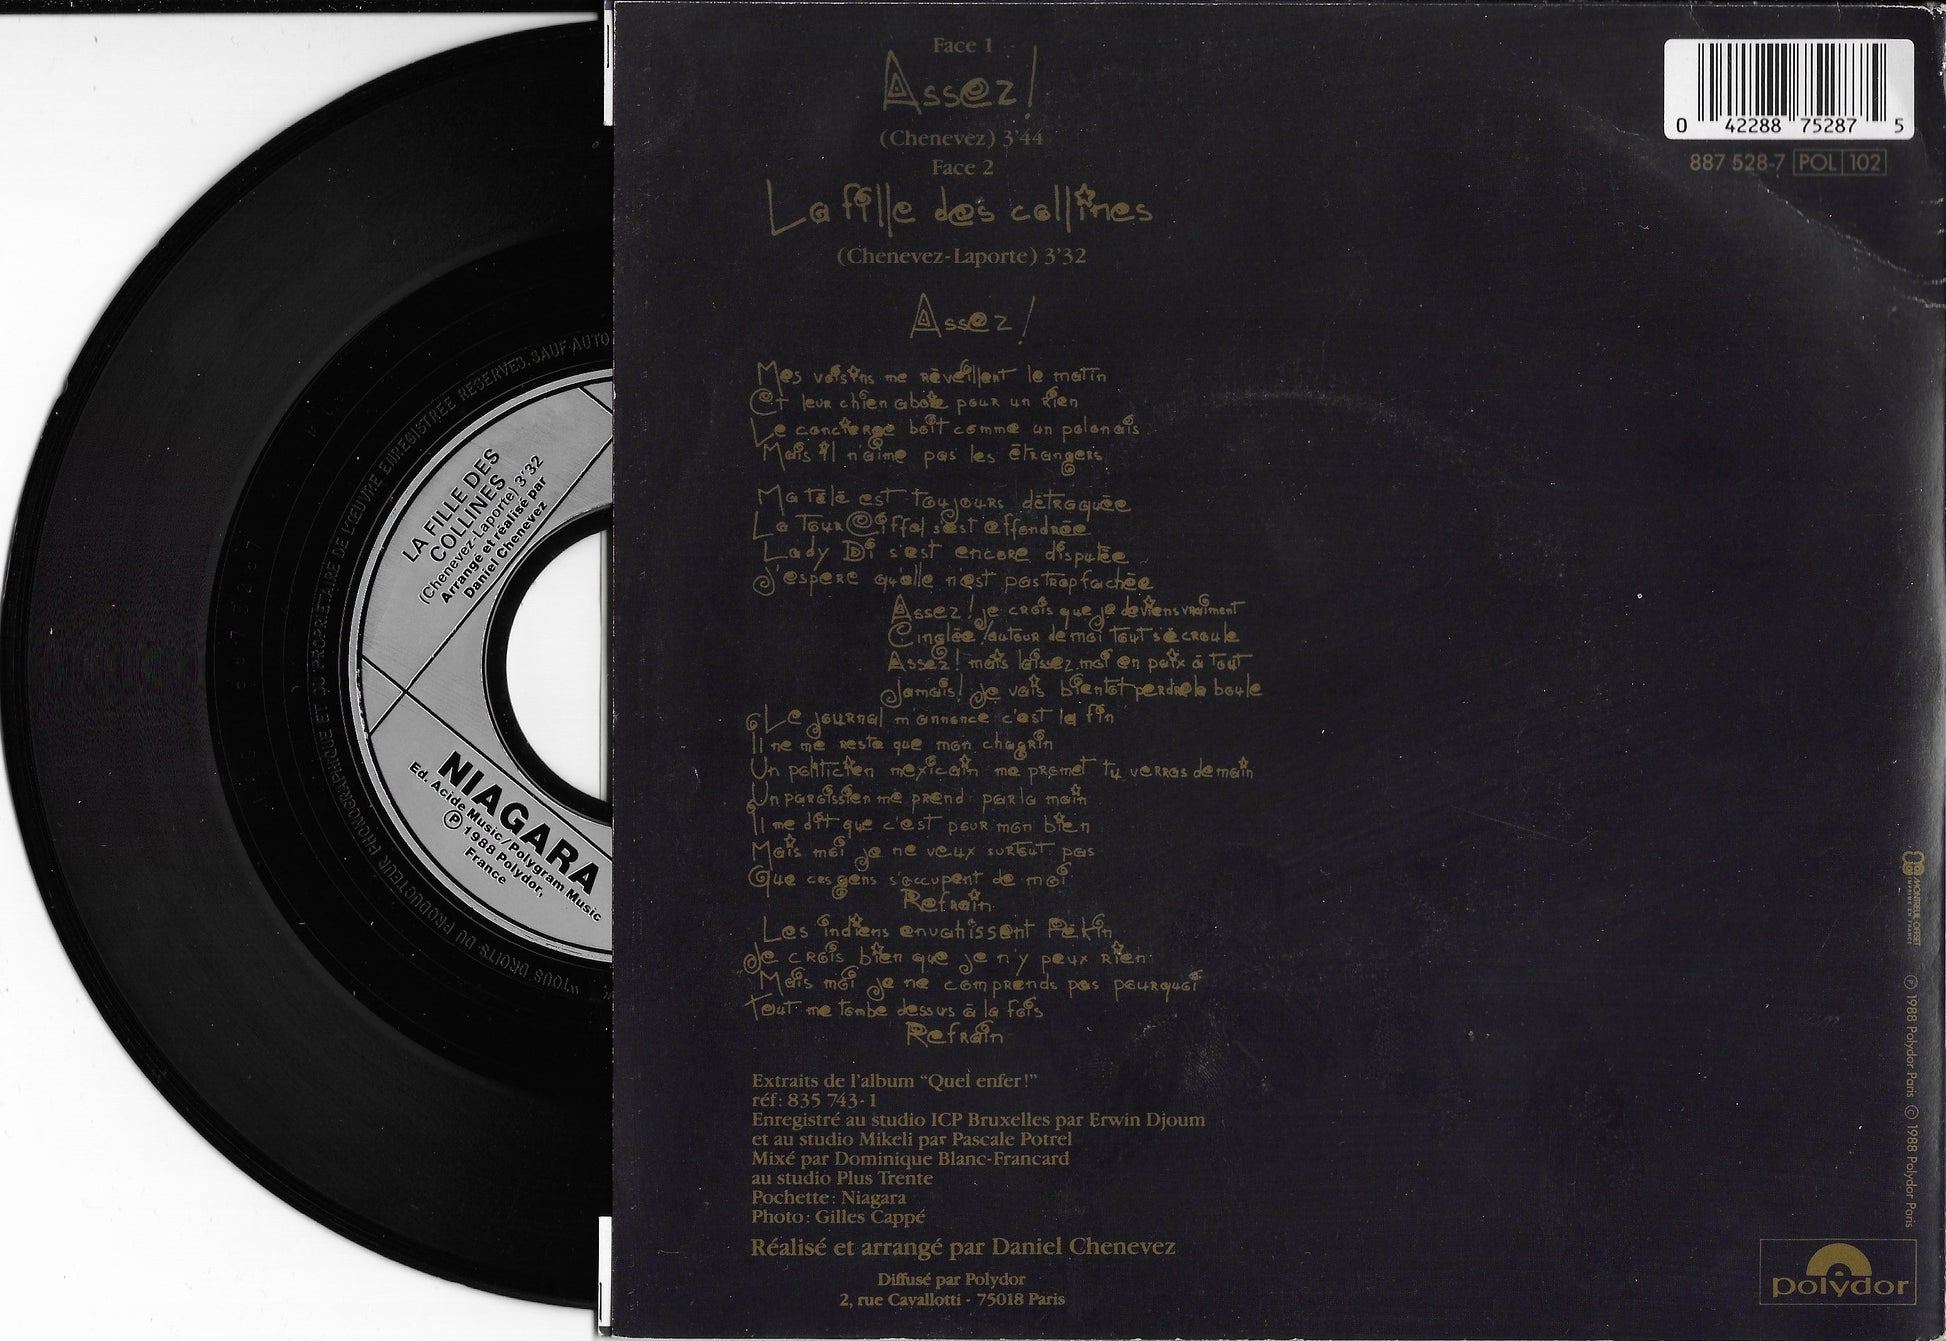 Face 1
Assez!
(Chenevez) 3'44
Face 2
La fille des collines
(Chenevez-Laporte) 3'32
Assez!
Mes voisins me réveillent le matin
Et leur chien aboie pour un rien
Le concierge boit comme un polonais
Mais il n'aime pas les étrangers
Ma télé est toujours détraquée
La tour Eiffel s'est effondrée
Lady Di s'est encore disputée
J'espère qu'elle n'est pas trop fachée
Assez! je crois que je deviens vraiment
Cinglée! autour de moi tout s'écroule
Assez! mais laissez moi en paix à tout
Jamais! je vais bientot perdre la boule
Le journal m'annonce c'est la fin
Il ne me reste que mon chagrin
Un politicien mexicain me promet tu verras demain
Un paroissien me prend par la main
Il me dit que c'est pour mon bien
Mais moi je ne veux surtout pas
Que ces gens s'occupent de moi
Refrain
Les indiens envahissent Pékin
Je crois bien que je n'y peux rien
Mais moi je ne comprends pas pourquoi
Tout me tombe dessus à la fois
Refrain
Extraits de l'album "Quel enfer!"
réf: 835 743-1
Enregistré au studio ICP Bruxelles par Erwin Djoum
et au studio Mikeli par Pascale Potrel
Mixé par Dominique Blanc-Francard
au studio Plus Trente
Pochette: Niagara
Photo: Gilles Cappé
Réalisé et arrangé par Daniel Chenevez
Diffusé par Polydor
2, rue Cavallotti - 75018 Paris
0 42288 75287 5
887 528-7 POL 102
MONTREUIL OFFSET
IMPRIMÉ EN FRANCE
Ⓟ 1988 Polydor Paris © 1988 Polydor Paris
polydor
LA FILLE DES
COLLINES
(Chenevez-Laporte) 3'32
Arrangé et réalisé par
Daniel Chenevez
NIAGARA
Ed. Acide Music/Polygram Music
Ⓟ 1988 Polydor,
France
"TOUS DROITS DU PRODUCTEUR PHONOGRAPHIQUE ET DU PROPRIETAIRE DE L'ŒUVRE ENREGISTRÉE RESERVES. SAUF AUTO